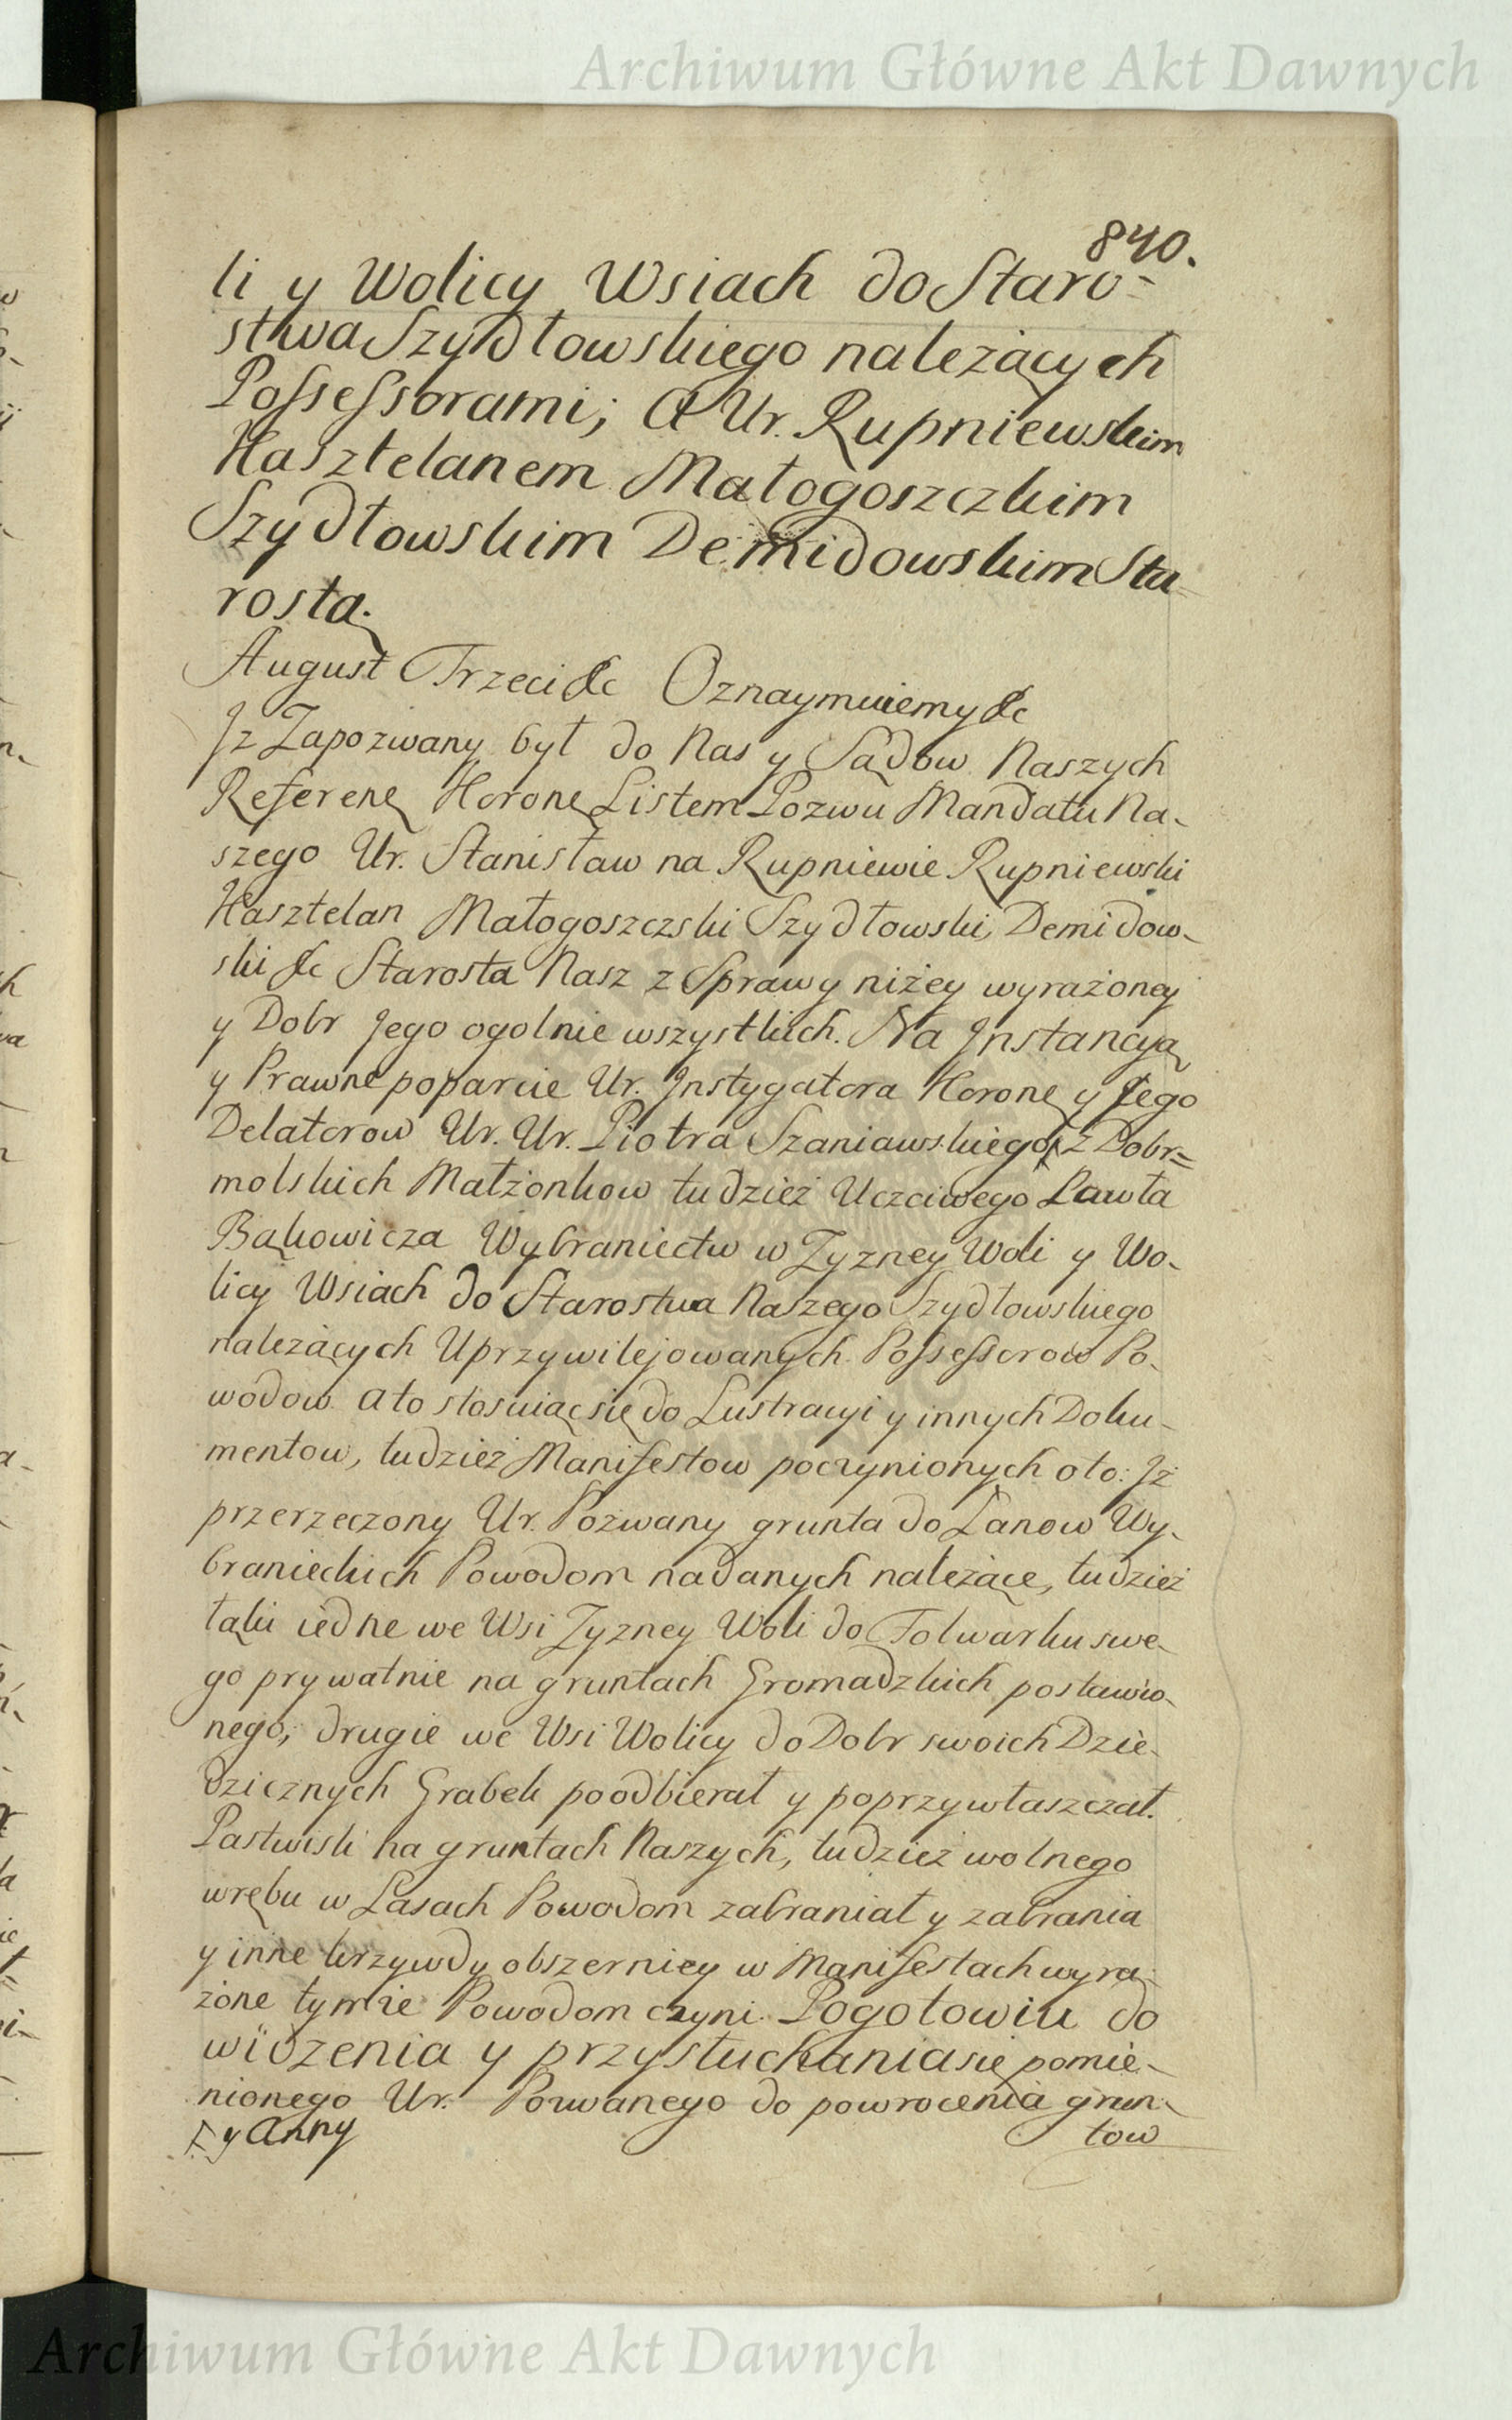 Archiwum Główne Akt Dawnych
840.
li y Wolicy Wsiach do Staro-
stwa Szydłowskiego należących
Possessorami; A Ur. Rupniewskim
Kasztelanem Małogoszczkim
Szydłowskim Demidowskim Sta-
rostą.
August Trzeci &c Oznaymuiemy &c
Iż Zapozwany był do Nas y Sądow Naszych
Referenę Koronę Listem Pozwu Mandatu Na-
szego Ur. Stanisław na Rupniewie Rupniewski
Kasztelan Małogoszczski Szydłowski, Demidow-
ski &c Starosta Nasz z Sprawy niżey wyrażoney
y Dobr Jego ogolnie wszystkich. Na Jnstancyą
y Prawne poparcie Ur. Jnstygatora Koronę y Jego
Delatorow Ur. Ur. Piotra Szaniawskiego, z Dobr=
molskich Małżonkow tudzież Uczciwego Pawła
Bąkowicza Wybraniectw w Zyzney Woli y Wo-
licy Wsiach do Starostwa Naszego Szydłowskiego
należących Uprzywilejowanych Possessorow Po-
wodow a to stosuiąc się do Lustracyi y innych Doku-
mentow, tudzież Manifestow poczynionych oto: Iż
przerzeczony Ur. Pozwany grunta do Łanow Wy-
branieckich Powodom nadanych należące, tudzież
łąki iedne we Wsi Zyzney Woli do Folwarku swe-
go prywatnie na gruntach Gromadzkich postawio-
nego, drugie we Wsi Wolicy do Dobr swoich Dzie-
dzicznych Grabek poodbierał y poprzywłaszczał.
Pastwisk na gruntach Naszych, tudzież wolnego
wrębu w Lasach Powodom zabraniał y zabrania
y inne krzywdy obszerniey w Manifestach wyra-
żone tymże Powodom czyni. Pogotowiu do
widzenia y przysłuchania się pomie-
nionego Ur. Pozwanego do powrocenia grun-
tow
y Anny
Archiwum Główne Akt Dawnych